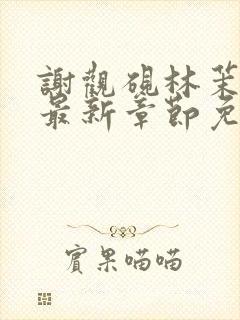 謝觀硯林茉
最新章節免
賓果喵喵